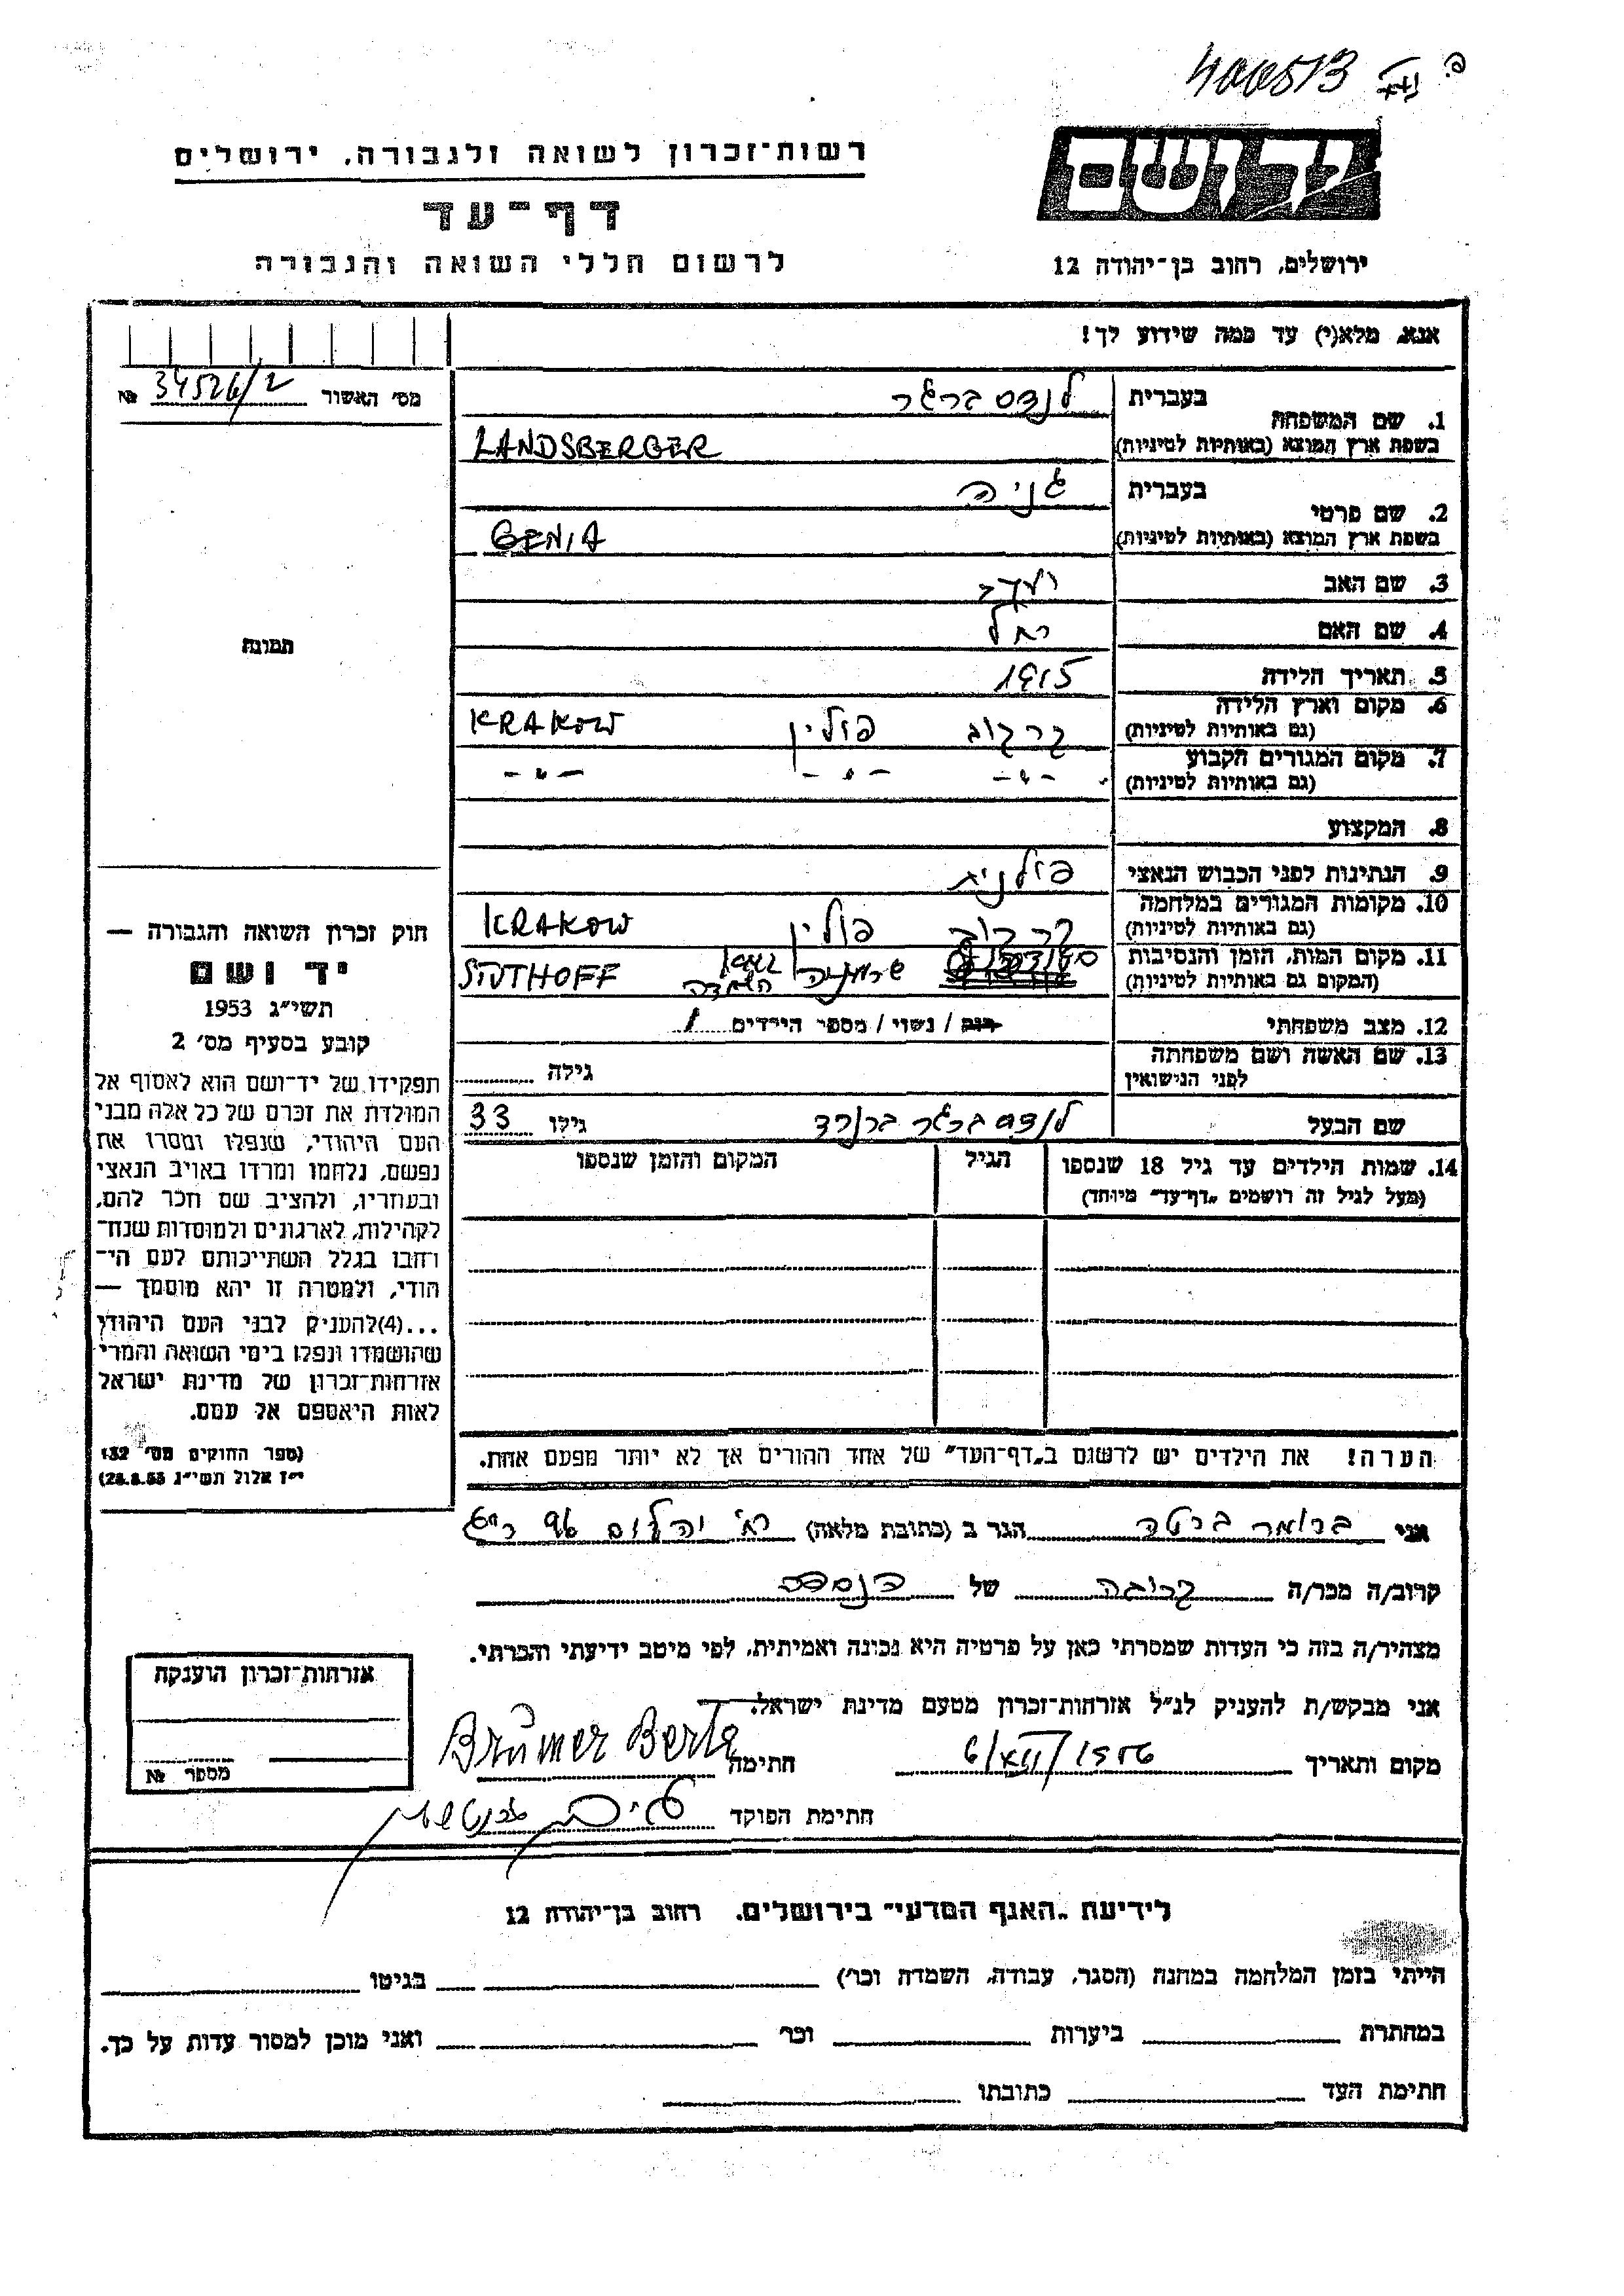 400513
רשות־זכרון לשואה ולגבורה, ירושלים
יד ושם
דף־עד
לרשום חללי השואה והגבורה
ירושלים, רחוב בן־יהודה 12
אנא, מלא(י) עד כמה שידוע לך!
מס' האשור 34526/2 №
1. שם המשפחה
בעברית לנדסברגר
בשפת ארץ המוצא (באותיות לטיניות) LANDSBERGER
2. שם פרטי
בעברית גניה
בשפת ארץ המוצא (באותיות לטיניות) GENIA
3. שם האב
4. שם האם רחל
5. תאריך הלידה 1915
6. מקום וארץ הלידה
(גם באותיות לטיניות) קרקוב פולין KRAKOW
7. מקום המגורים הקבוע
(גם באותיות לטיניות) -"- -"- -"-
8. המקצוע
9. הנתינות לפני הכבוש הנאצי פולנית
10. מקומות המגורים במלחמה
(גם באותיות לטיניות) קרקוב פולין KRAKOW
11. מקום המות, הזמן והנסיבות
(המקום גם באותיות לטיניות) גרמניה השמדה STUTHOFF
12. מצב משפחתי רווק / נשוי / מספר הילדים 1
13. שם האשה ושם משפחתה
לפני הנישואין גילה
שם הבעל לנדסברגר ברנרד גילו 33
14. שמות הילדים עד גיל 18 שנספו
(מעל לגיל זה רושמים "דף־עד" מיוחד)
הגיל
המקום והזמן שנספו
הערה! את הילדים יש לרשום ב"דף־העד" של אחד ההורים אך לא יותר מפעם אחת.
תמונה
חוק זכרון השואה והגבורה —
יד ושם
תשי"ג 1953
קובע בסעיף מס' 2
תפקידו של יד־ושם הוא לאסוף אל
המולדת את זכרם של כל אלה מבני
העם היהודי, שנפלו ומסרו את
נפשם, נלחמו ומרדו באויב הנאצי
ובעוזריו, ולהציב שם וזכר להם,
לקהילות, לארגונים ולמוסדות שנח־
רבו בגלל השתייכותם לעם הי־
הודי, ולמטרה זו יהא מוסמך —
...(4) להעניק לבני העם היהודי
שהושמדו ונפלו בימי השואה והמרי
אזרחות־זכרון של מדינת ישראל
לאות היאספם אל עמם.
(ספר החוקים מס' 132
י"ז אלול תשי"ג 28.8.53)
אני ברומר ברטה הגר ב (כתובת מלאה) רח' יהלום 96
קרוב/ה מכר/ה קרובה של הנספה
מצהיר/ה בזה כי העדות שמסרתי כאן על פרטיה היא נכונה ואמיתית, לפי מיטב ידיעתי והכרתי.
אני מבקש/ת להעניק לנ"ל אזרחות־זכרון מטעם מדינת ישראל.
מקום ותאריך 6/XII/1956 חתימה Brümer Berta
חתימת הפוקד
אזרחות־זכרון הוענקה
מספר №
לידיעת "האגף המדעי" בירושלים, רחוב בן־יהודה 12
הייתי בזמן המלחמה במחנה (הסגר, עבודה, השמדה וכו') בגיטו
במחתרת ביערות וכו' ואני מוכן למסור עדות על כך.
חתימת העד כתובתו